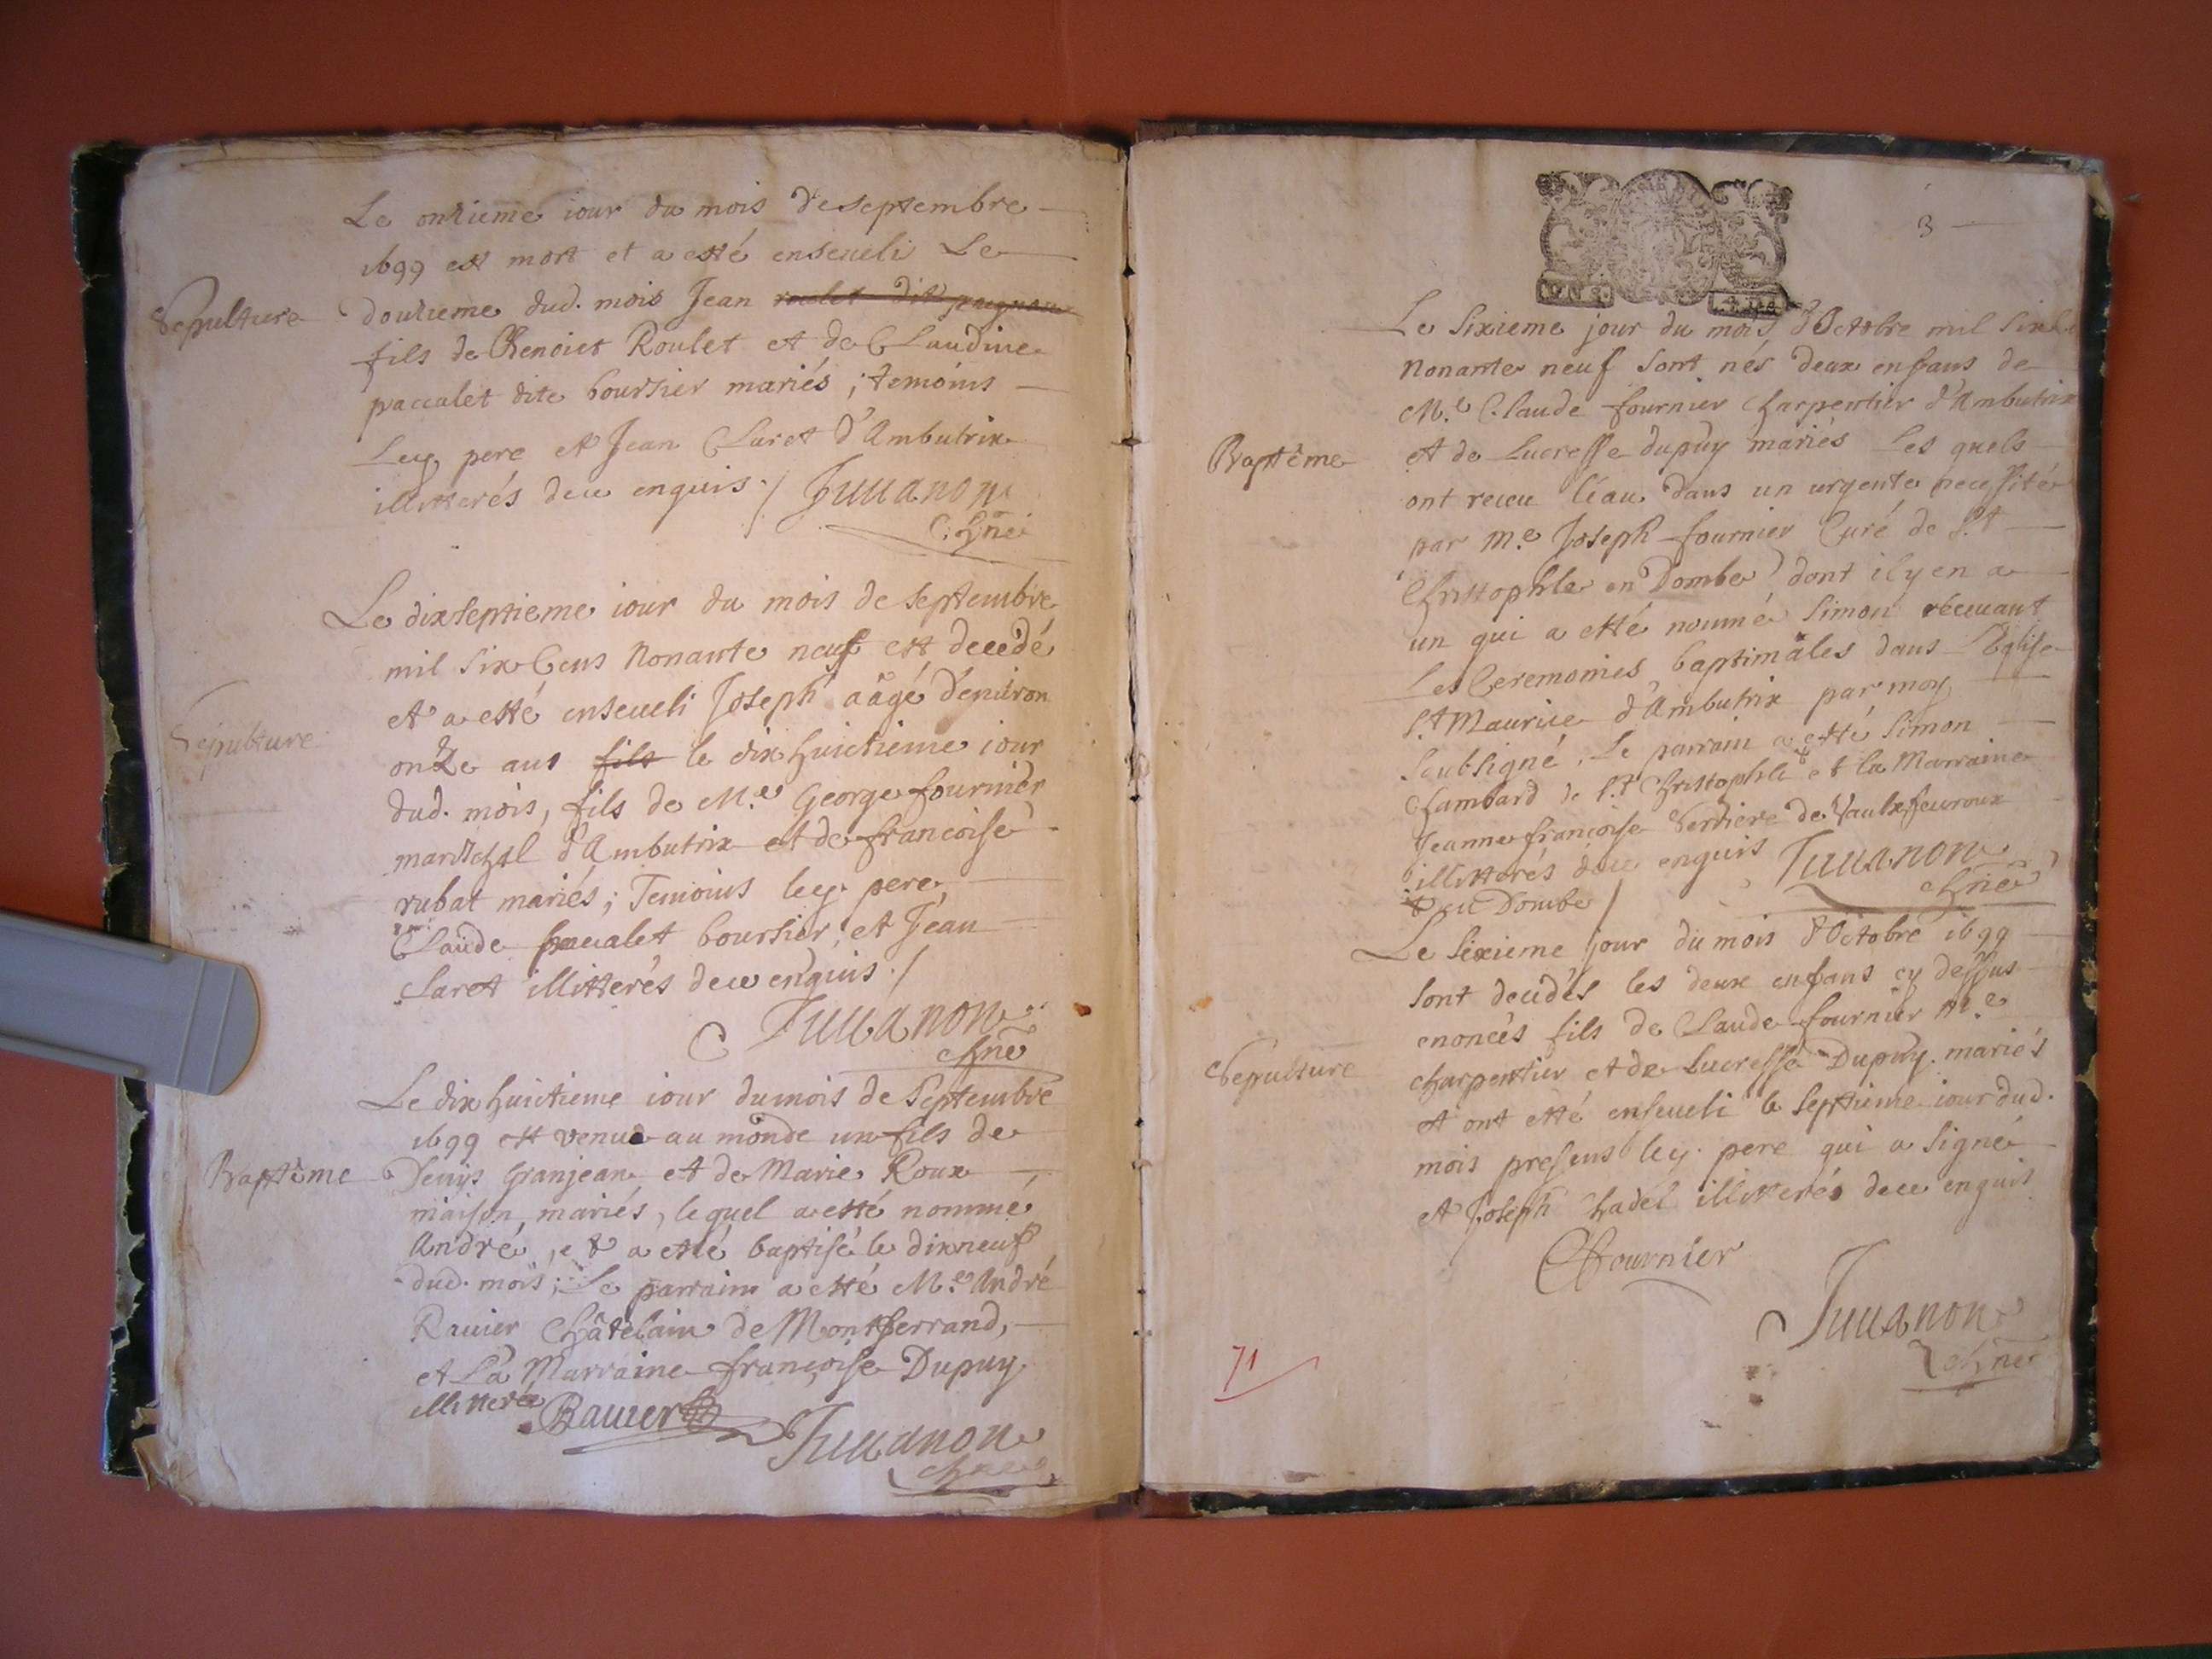 Le onzieme iour du mois de septembre
1699 est mort et a esté enseueli Le
Sepulture
douzieme dud. mois Jean roulet dit
fils de Benoict Roulet et de Claudine
paccalet dite boursier mariés ; temoins
Ley. pere et Jean Claret d'Ambutrix
illitterés deue enquis ./ Juuanon
Le dixseptieme iour du mois de septembre
mil six Cens Nonante neuf est decedé
et a esté enseueli Joseph aâgé d'enuiron
Sepulture
onze ans fils le dix huictieme iour
dud. mois, fils de M.e George fournier
mareschal d'Ambutrix et de francoise
rubat mariés ; Temoins ley. pere,
Claude paccalet boursier, et Jean
Claret illitterés deue enquis ./
Juuanon
Le dix huictieme iour du mois de Septembre
1699 est venue au monde un fils de
Baptême
Denys Granjean et de Marie Roux
maison mariés, lequel a esté nommé
André, et a etté baptisé le dixneuf
dud. mois ; Le parrain a esté M.e André
Rauier Châtelain de Montferrand,
et La Marraine françoise Dupuy
illitterée
Rauier
Juuanon
3
Le Sixieme jour du mois d'Octobre mil six
Nonante neuf sont nés deux enfans de
M.e Claude fournier charpentier d'Ambutrix
Baptême
et de Lucresse dupuy mariés Les quels
ont receu l'eau dans un urgente necessité
par M.e Joseph fournier Curé de S.t
Christophle en Dombe dont il y en a
un qui a etté nommé Simon receuant
Les Ceremonies baptimales dans L'Eglise
S.t Maurice d'Ambutrix par moy
Soubsigné. Le parrain a etté Simon
Chambard de S.t Christophle et la Marraine
Jeanne françoise
illitterés deue enquis Juuanon
en Dombe /
Le Sixieme jour du mois d'Octobre 1699
Sont decidés les deux enfans cy dessus
enoncés fils de Claude fournier M.e
Sepulture
charpentier et de Lucresse Dupuy mariés
et ont etté enseueli le Septieme iour dud.
mois presens ley. pere qui a signé
et Joseph illitterés deue enquis
CFournier
Juuanon
71